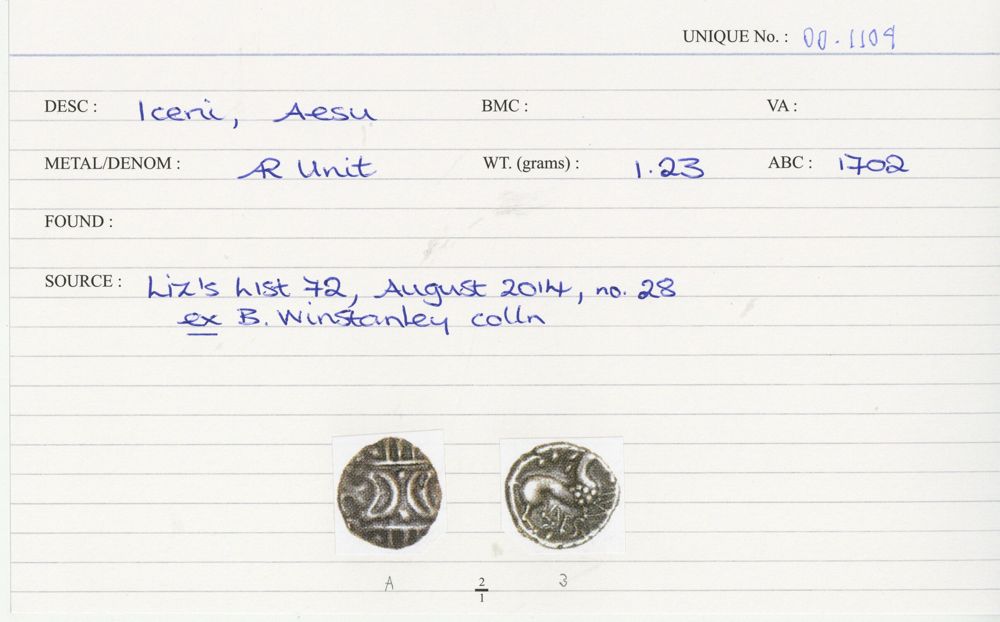 UNIQUE No. : 00.1104
DESC : Iceni, Aesu BMC : VA :
METAL/DENOM : AR Unit WT. (grams) : 1.23 ABC : 1702
FOUND :
SOURCE : Liz's List 72, August 2014, no. 28
ex B. Winstanley colln
A 2/1 3